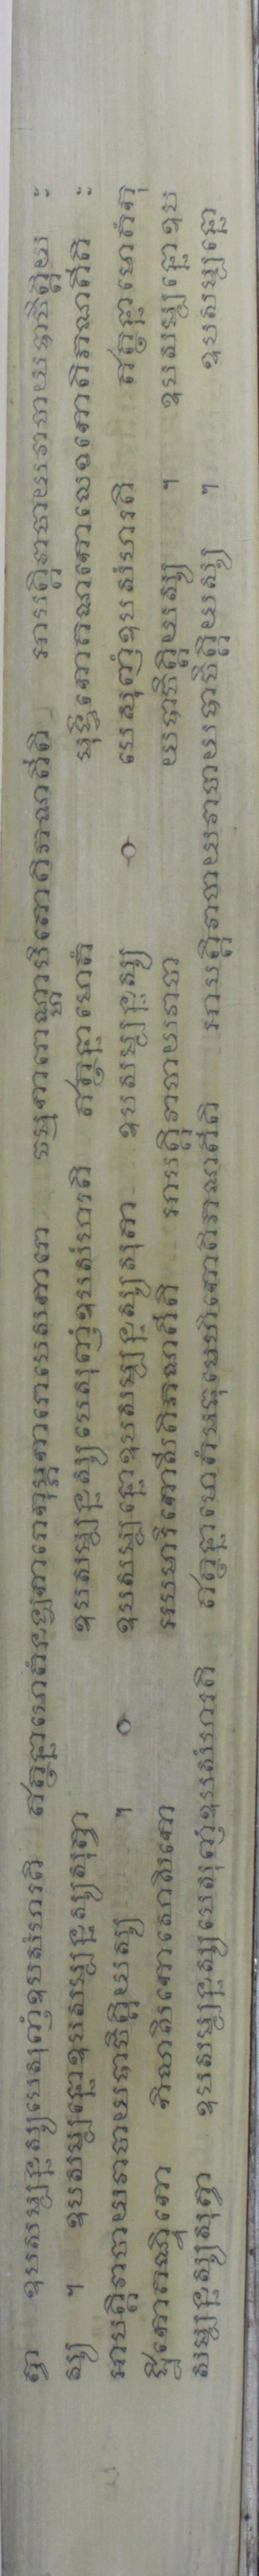 ត្វា ឧបសម្បន្នស្សបេសុញំឧបសំហរតិ ឥត្ថន្នាមោតំនឡការោកុម្ភការោបេសការោ ចម្មការោណ្ហាបិតោតិភណតីតិ អាបត្តិវាចាយវាចាយបាចិត្តិយ ៈ
ស្ស ។ ឧបសម្បន្នោឧបសម្បន្នស្សសុត្វា ឧបសម្បន្នស្សបេសុញំឧបសំហរតិ ឥត្ថន្នាមោតំ មុទ្ទិកោគណកោលេខកោតិភណតីតិ ៈ
អាបត្តិវាចាយវាចាយបាចិត្តិយស្ស ។ ឧបសម្បន្នោឧបសម្បន្នស្សសុតា ឧបសម្បន្នស្ស បេសុញំឧបសំហរតិ ឥត្ថន្នាមោតំកុ
ដ្ឋិកោគណ្ឌិកោ កិលាសិកោសោសិកោ អបមារិកោសីតិភណតីតិ អាបត្តិវាចាយវាចា យបាចិត្តិយស្ស ។ ឧបសម្បន្នោឧប
សម្បន្នស្សសុត្វា ឧបសម្បន្នស្សបេសុញំឧបសំហរតិ ឥត្ថន្នាមោតំមធុមេហិកោតិភណតីតិ អាបត្តិវាចាយវាចាយបាចិត្តិយស្ស ។ ឧបសម្បន្នោ